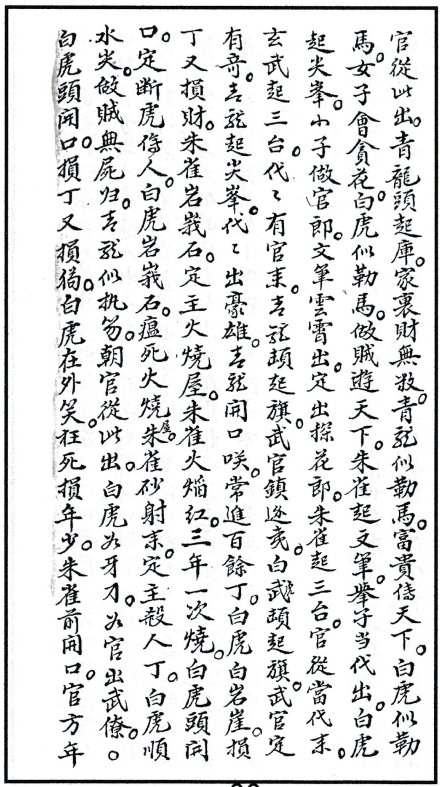 官從此出。青龍頭起庫。家裏財無数。青龍似勒馬。富貴傳天下。白虎似勒
馬。女子會貪花。白虎似勒馬。做賊遊天下。朱雀起文筆。舉子当代出。白虎
起尖峯。小子做官郎。文筆雲霄出。定出探花郎。朱雀起三台。官從當代来。
玄武起三台。代〻有官来。青龍頭起旗。武官鎮边夷。白虎頭起旗。武官定
有竒。青龍起尖峯。代〻出豪雄。青龍開口咲。常進百餘丁。白虎白岩崖。損
丁又損財。朱雀岩峩石。定主火燒屋。朱雀火焰紅。三年一次燒。白虎頭開
口。定断虎傷人。白虎岩峩石。瘟死火燒屋。朱雀砂射来。定主殺人丁。白虎順
水尖。做賊無屍归。青龍似执笏。朝官從此出。白虎如牙刀。如官出武僚。
白虎頭開口。損丁又損。白虎在外笑。狂死損年少。朱雀前開口。官方年